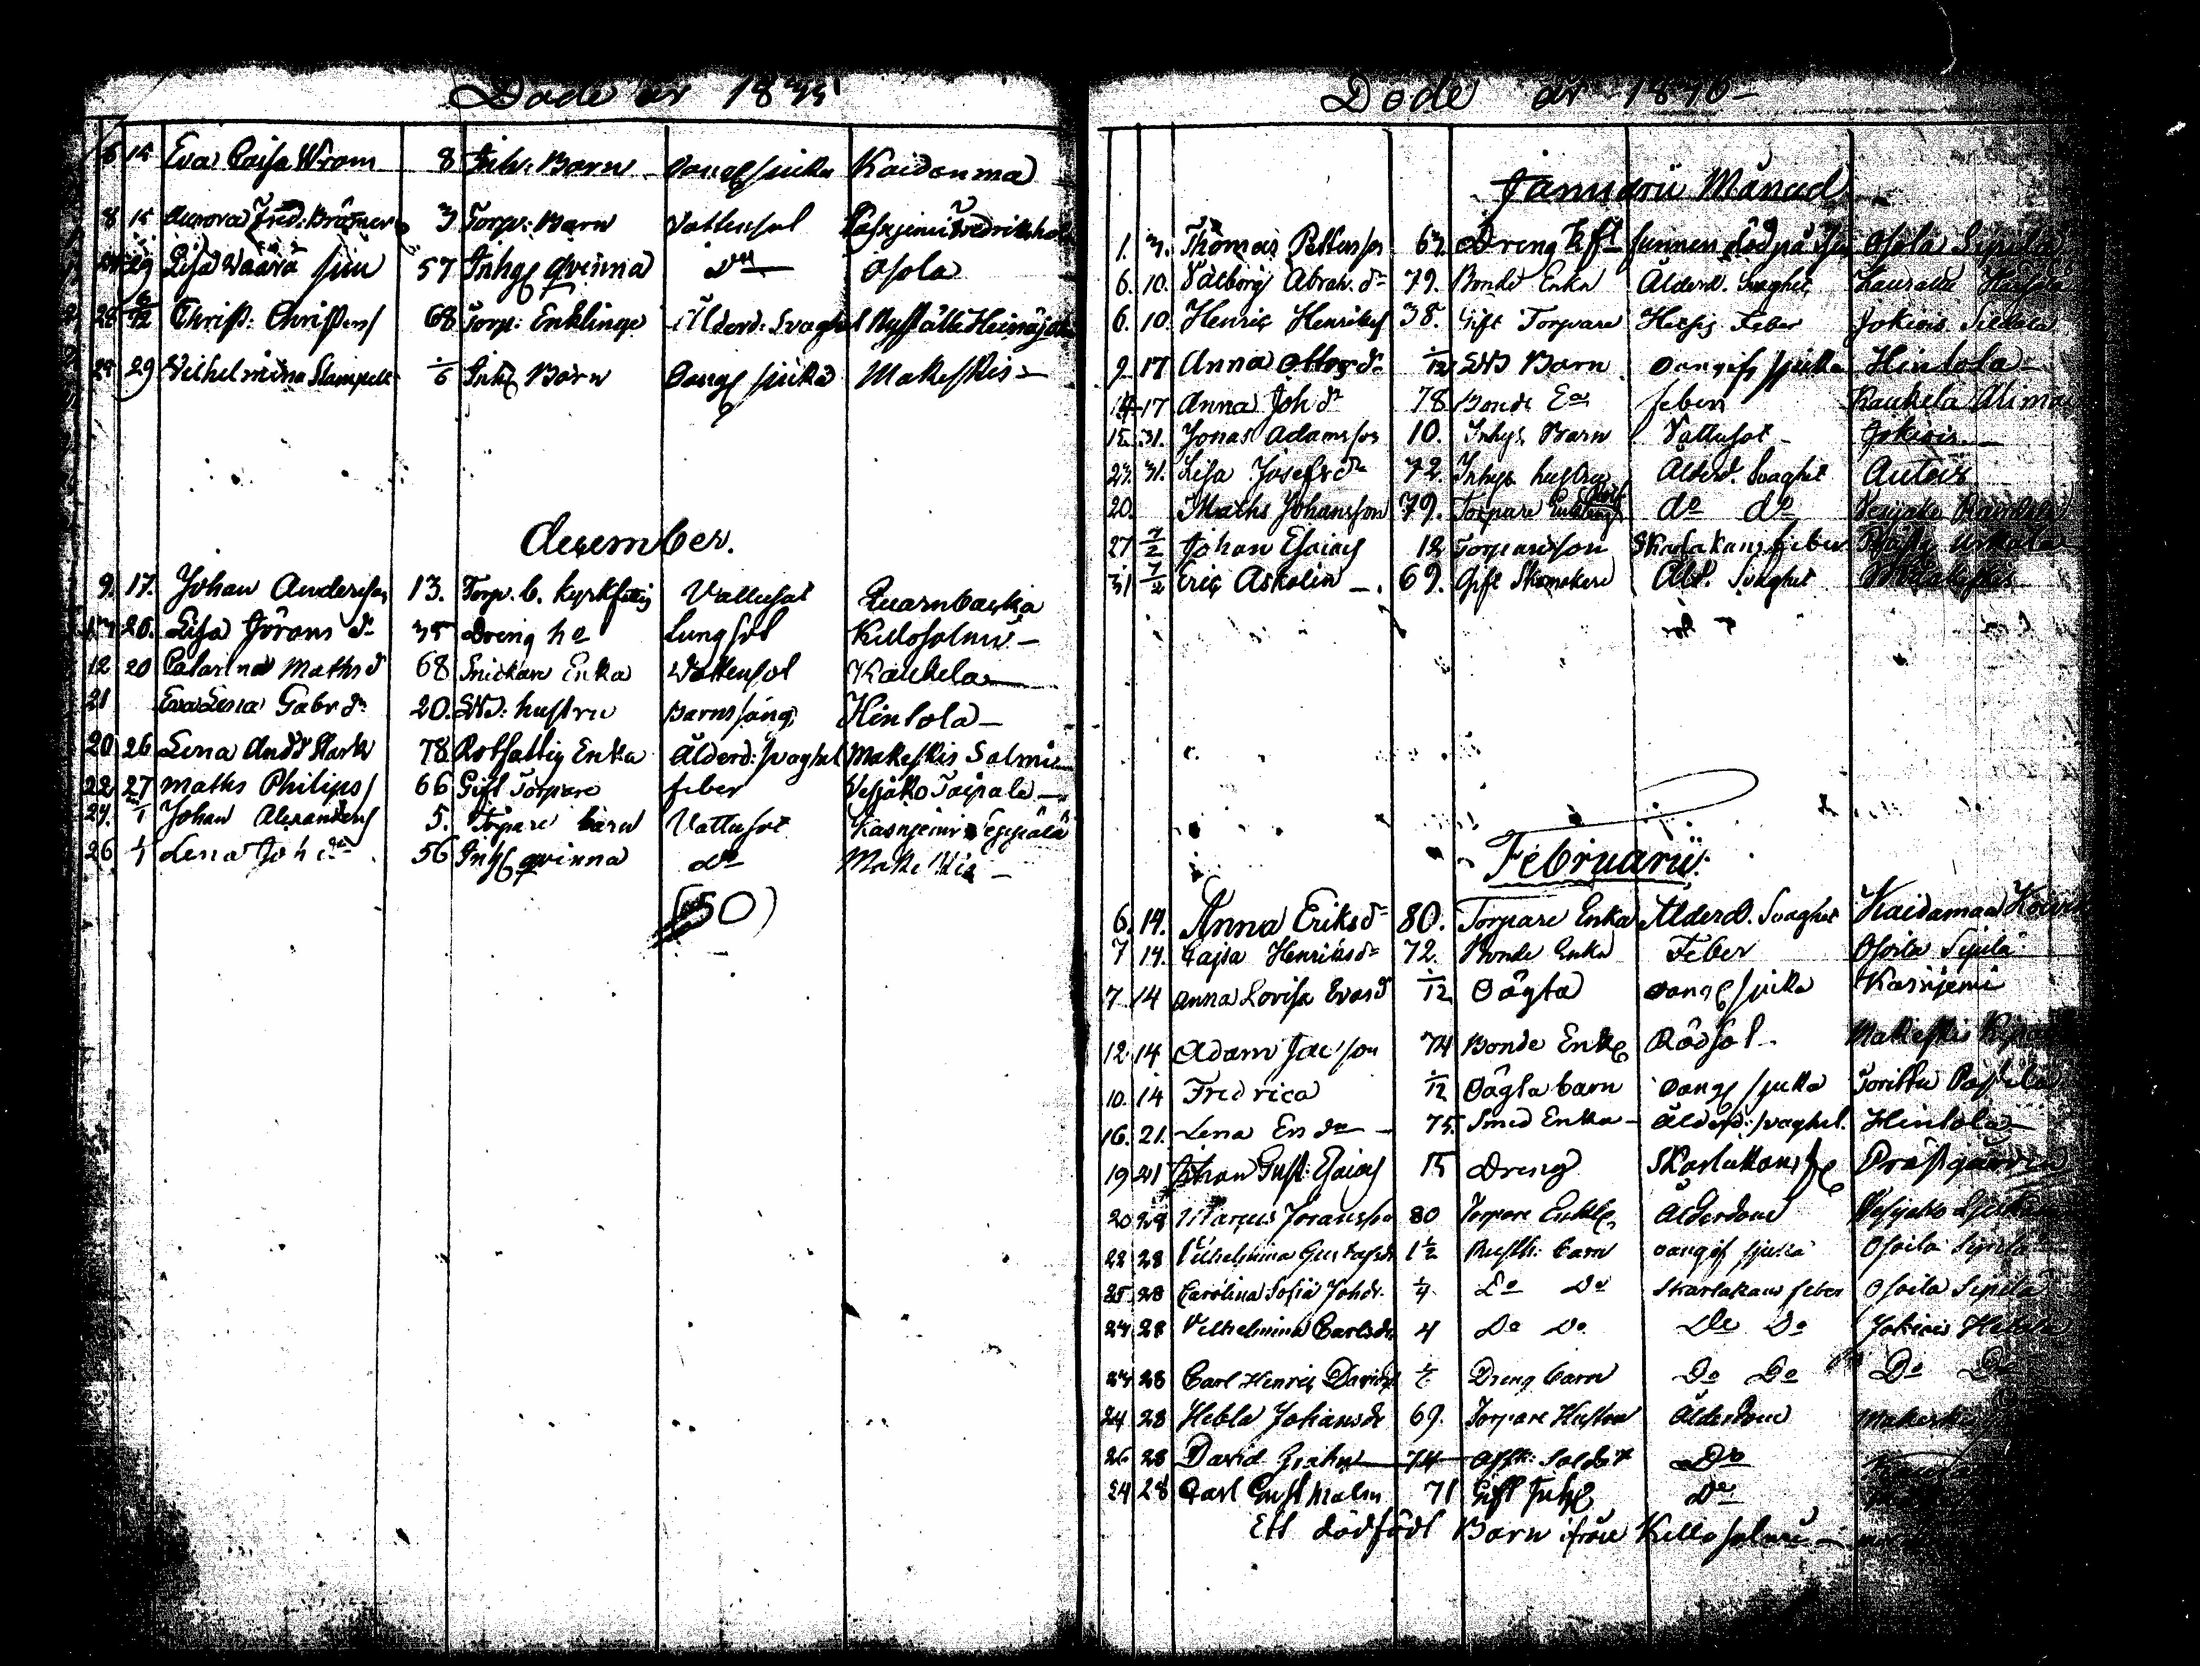 Döde år 1835
6 15 Eva Caisa Wram 8 Inh: Barn Oangifsjuka Kaidanma
8 15 Aurora Fred: 3 Torp: Barn Vattusot
29 Lisa Waara 57 Inhys qvinna do Osola
28 6/12 Christ: Christerss 68 Torp: Enklinge Ålderd: Svaghet Nystälte
29 Vilhelmina 1/6 Inhs Barn Oangf sjuka Makeskis
December.
9. 17. Johan Andersson 13. Torp. b. kyrkfattig Vattusot Quarnbacka
20. Lisa Jörans dr 35 Dreng ha Lungsot Killosalmi
12 20 Catarina Maths d 68 Snickare Enka Vattusot Kaukela
21 Eva Lena Gabr dr 20. Sold: hustru Barnsäng Hintola
20 26 Lena Andd Stark 78 Rotfattig Enka Ålderd: svaghet Makeskis Salmi
22 27 Maths Philipss 66 Gift Torpare feber Vesjako Taipala
24. 1/1 Johan Alexanders 5. Torpare barn Vattusot Kasnjemi Seppälä
26 1/1 Lena Joh dr 56 Inhs qvinna do Makeskis
(50)
Döde år 1836
Januarii Månad
1. 3. Thomas Pettersson 63. Dreng Gift funnen död på Osola Sipila
6. 10. Valborg Abrah. dr 79. Bonde Enka Ålderd. Svaghet
6. 10. Henric Henrikss 38. Gift Torpare Hetsig Feber Jokiois
9 17 Anna Ottos dr 1/12 Sold Barn Oangifs sjuka Hintola
14 17 Anna Joh dr 78 Bonde Ea feber Kaukela Alimaa
15. 31. Jonas Adamsson 10. Inhys Barn Vattusot Jokiois
23. 31. Lisa Josefs dr 72. Inhys hustru Ålderd. Svaghet Autois
20. Maths Johansson 79. Torpare Enkling do do Vesjako
27 7/2 Johan Esaias 12 Torpareson Skarlakans feber
31 7/2 Eric Askolin 69. Gift Skomakare Åld. Svaghet Makeskis
Februarii.
6. 14. Anna Eriksdr 80. Torpare Enka Ålderd. Svaghet Kaidamaa
7 14. Cajsa Henriksdr 72. Bonde Enka Feber Osoila Sipila
7 14 Anna Lovisa Evasd 1/12 Oägta oangf sjuka Kasnjemi
12. 14 Adam Jacsson 74 Bonde Enkl Rödsot Makeskis
10. 14 Fredrica 1/12 Oägta barn oangf sjuka Torittu
16. 21. Lena Ersdr 75. Smed Enka Ålderd: svaghet. Hintola
19 21 Johan Gust: Esaiass 15 Dreng Skarlakansf Prästgården
20 28 Marcus Jöransson 80 Torpare Enkl Ålderdom Vesjako
22 28 Vilhelmina Gustafsdr 1 1/2 Rusth: barn oangif sjuka Osoila Sipila
25 28 Carolina Sofia Johdr. 1/4 Do Do Skarlakans feber Osoila Sipila
24 28 Vilhelmina Carlsdr 4 Do Do Do Do Jokiois
24 28 Carl Henric Davidss Dreng barn Do Do Do Do
24 28 Hebla Johansdr 69. Torpare Hustru Ålderdom Makeskis
26 28 David Grahn 74 Afsk: Soldat Do
24 28 Carl Gust Malm 71 Gift Inhs Do
Ett dödfödt Barn ifrån Killosalmi